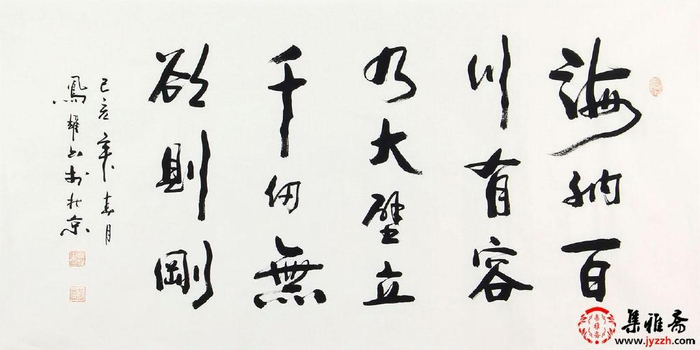 海納百
川有容
乃大壁立
千仞無
欲則剛
己亥年春月
鳳耀书於北京
集雅斋
www.jyzzh.com